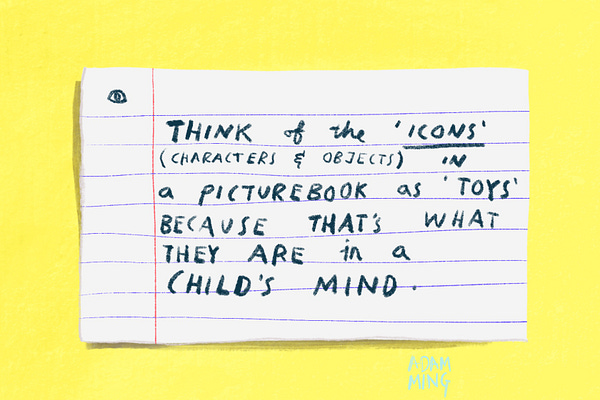 THINK of the 'ICONS'
(CHARACTERS & OBJECTS) IN
a PICTUREBOOK as 'TOYS'
BECAUSE THAT'S WHAT
THEY ARE in a
CHILD'S MIND.
ADAM
MING